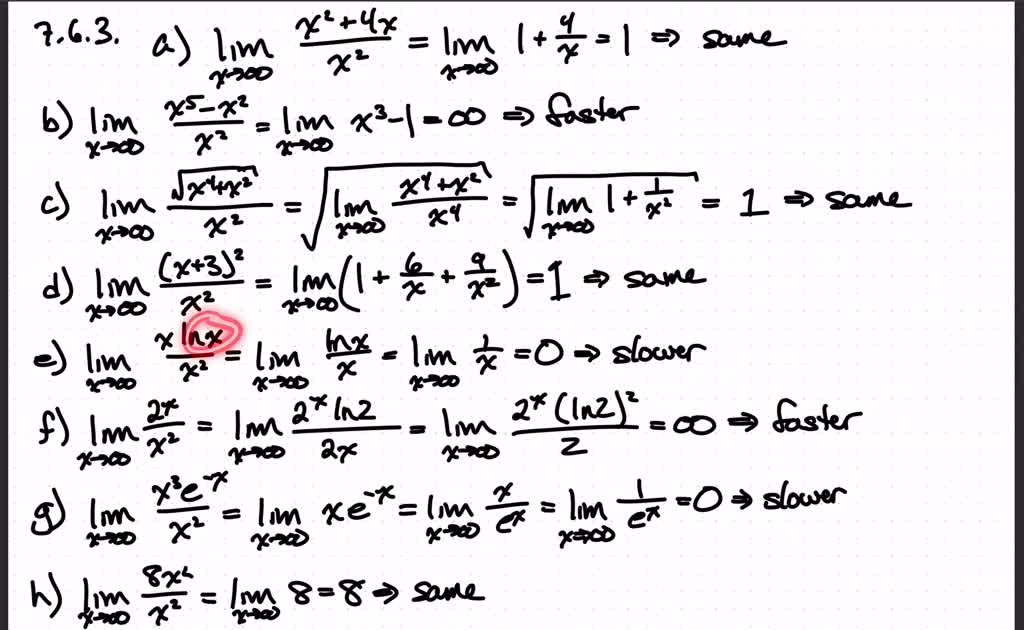 7.6.3. a) lim x→∞ (x² + 4x)/x² = lim x→∞ 1 + 4/x = 1 ⇒ same
b) lim x→∞ (x⁵ - x²)/x² = lim x→∞ x³ - 1 = ∞ ⇒ faster
c) lim x→∞ √(x⁴ + x²)/x² = √(lim x→∞ (x⁴ + x²)/x⁴) = √(lim x→∞ 1 + 1/x²) = 1 ⇒ same
d) lim x→∞ (x+3)²/x² = lim x→∞ (1 + 6/x + 9/x²) = 1 ⇒ same
e) lim x→∞ (x ln x)/x² = lim x→∞ ln x/x = lim x→∞ 1/x = 0 ⇒ slower
f) lim x→∞ 2ˣ/x² = lim x→∞ (2ˣ ln 2)/(2x) = lim x→∞ (2ˣ (ln 2)²)/2 = ∞ ⇒ faster
g) lim x→∞ (x³e⁻ˣ)/x² = lim x→∞ xe⁻ˣ = lim x→∞ x/eˣ = lim x→∞ 1/eˣ = 0 ⇒ slower
h) lim x→∞ 8x²/x² = lim x→∞ 8 = 8 ⇒ same